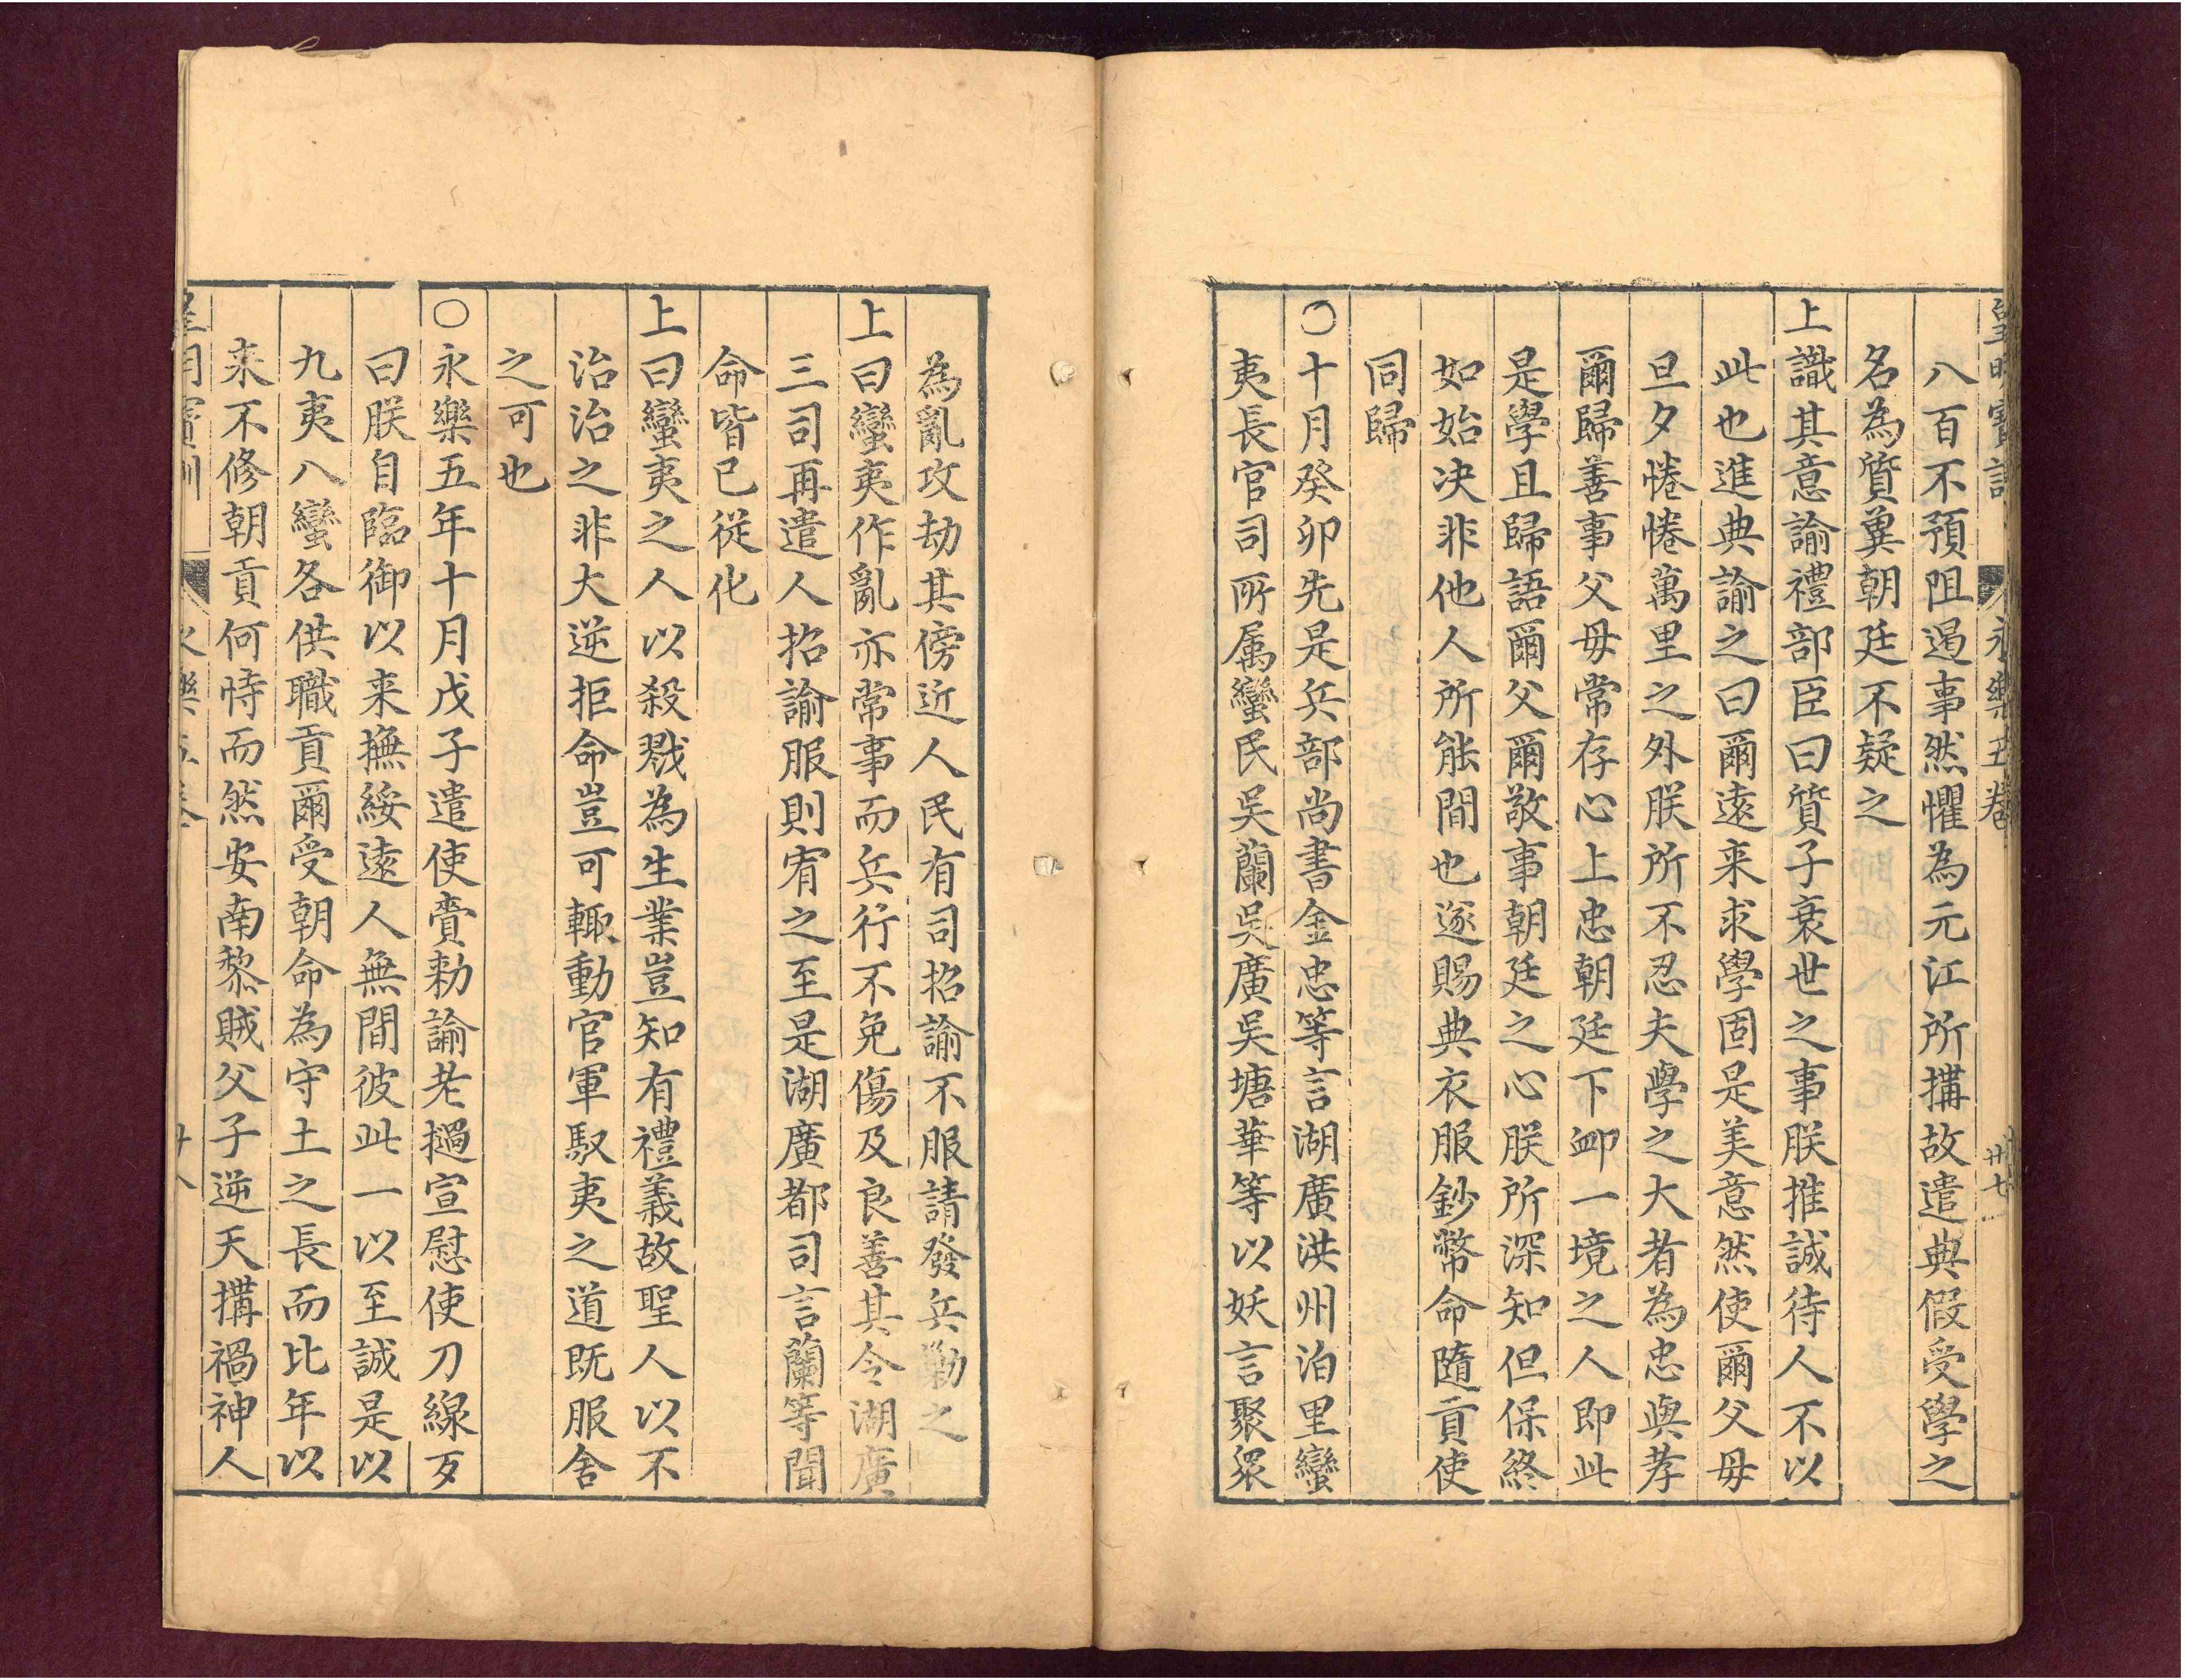 皇明寶訓 永樂五卷 廿七
八百不預阻遏事然懼為元江所搆故遣典假受學之
名為質冀朝廷不疑之
上識其意諭禮部臣曰質子衰世之事朕推誠待人不以
此也進典諭之曰爾遠来求學固是美意然使爾父母
旦夕惓惓萬里之外朕所不忍夫學之大者為忠與孝
爾歸善事父母常存心上忠朝廷下䘏一境之人即此
是學且歸語爾父爾敬事朝廷之心朕所深知但保終
如始决非他人所能間也遂賜典衣服鈔幣命隨貢使
同歸
〇十月癸卯先是兵部尚書金忠等言湖廣洪州泊里蠻
夷長官司所属蠻民吳蘭吳廣吳塘華等以妖言聚衆
為亂攻劫其傍近人民有司招諭不服請發兵勦之
上曰蠻夷作亂亦常事而兵行不免傷及良善其令湖廣
三司再遣人招諭服則宥之至是湖廣都司言蘭等聞
命皆已從化
上曰蠻夷之人以殺戮為生業豈知有禮義故聖人以不
治治之非大逆拒命豈可輙動官軍馭夷之道既服舍
之可也
〇永樂五年十月戊子遣使賫勑諭老撾宣慰使刀線歹
曰朕自臨御以来撫綏遠人無間彼此一以至誠是以
九夷八蠻各供職貢爾受朝命為守土之長而比年以
来不修朝貢何恃而然安南黎賊父子逆天搆禍神人
皇明寶訓 永樂五卷 廿八